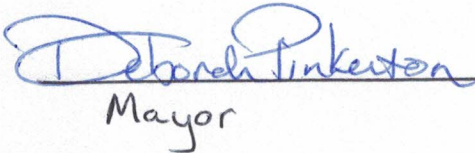 Deborah Pinkerton
Mayor